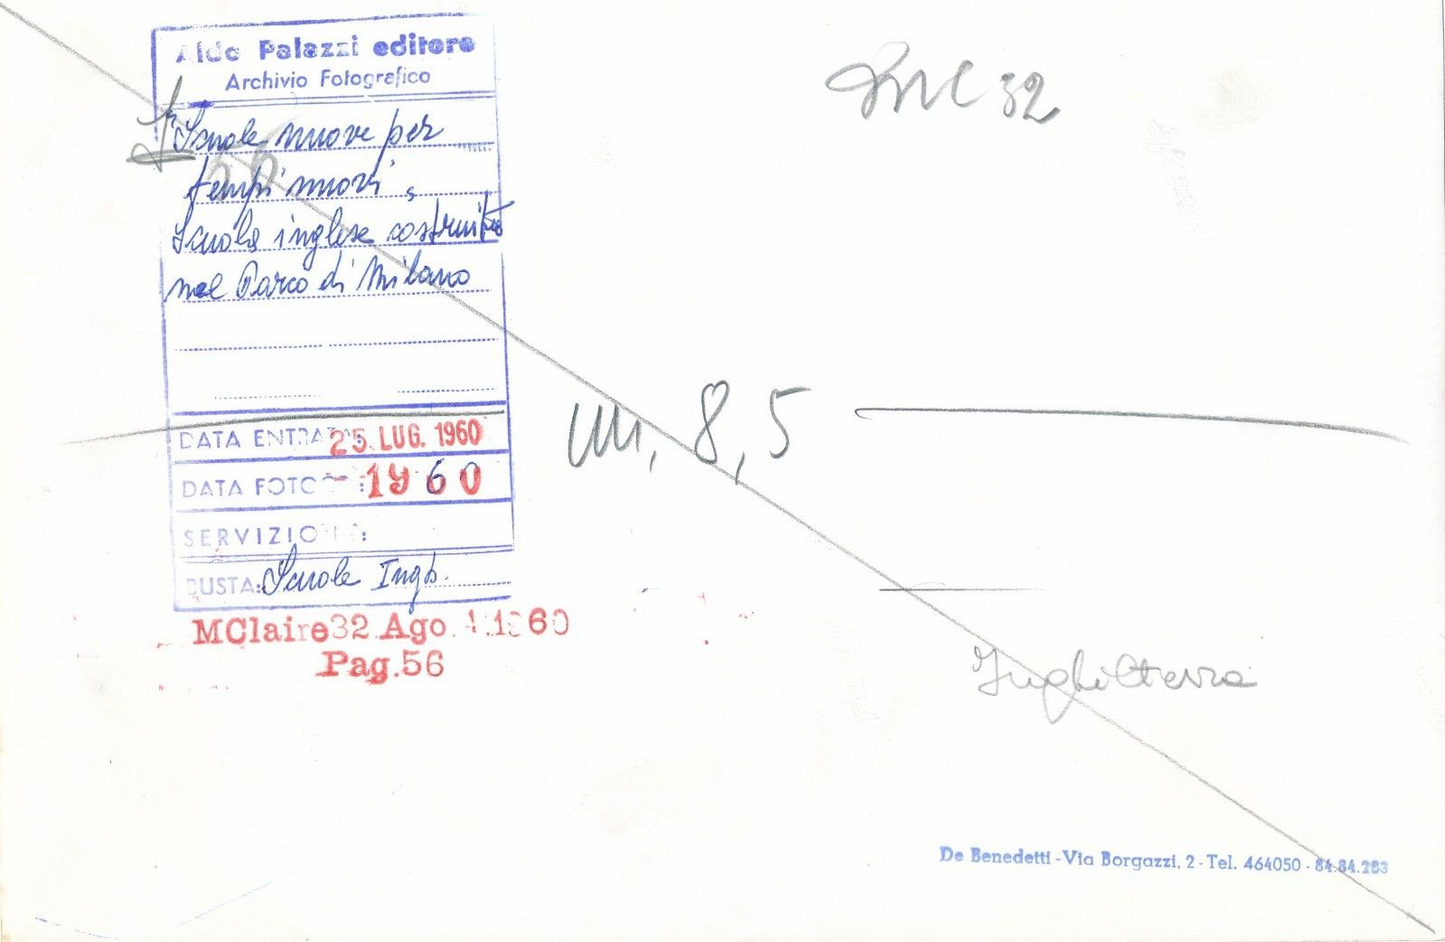 Aldo Palazzi editore
Archivio Fotografico
MC 32
Scuole nuove per
56
tempi nuovi,
Scuola inglese costruita
nel Parco di Milano
DATA ENTRATA 25. LUG. 1960
DATA FOTO : 1960
SERVIZIO :
BUSTA: Scuole Ingl.
MClaire32 Ago. 1960
Pag.56
8,5
Inghilterra
De Benedetti - Via Borgazzi, 2 - Tel. 464050 - 84.84.283